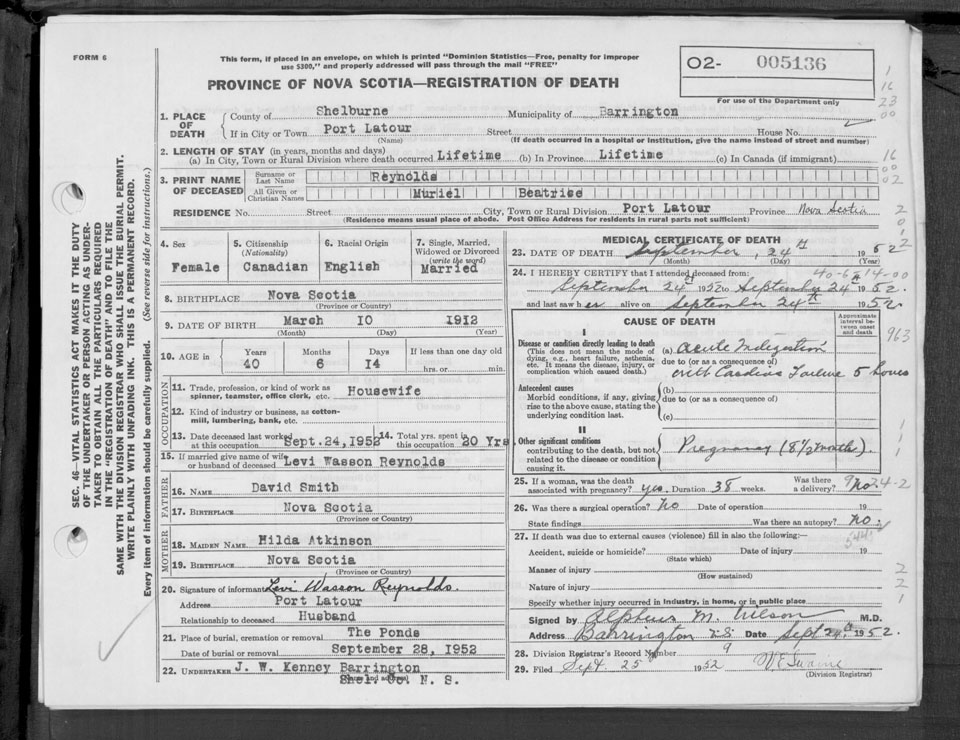 FORM 6
This form, if placed in an envelope, on which is printed "Dominion Statistics—Free, penalty for improper
use $300," and properly addressed will pass through the mail "FREE"
PROVINCE OF NOVA SCOTIA—REGISTRATION OF DEATH
O2- 005136
For use of the Department only
1. PLACE OF DEATH
County of Shelburne Municipality of Barrington
If in City or Town Port Latour Street House No.
(Name) (If death occurred in a hospital or institution, give the name instead of street and number)
2. LENGTH OF STAY (in years, months and days)
(a) In City, Town or Rural Division where death occurred Lifetime (b) In Province Lifetime (c) In Canada (if immigrant)
3. PRINT NAME OF DECEASED
Surname or Last Name Reynolds
All Given or Christian Names Muriel Beatrise
RESIDENCE No. Street City, Town or Rural Division Port Latour Province Nova Scotia
(Residence means usual place of abode. Post Office Address for residents in rural parts not sufficient)
4. Sex
Female
5. Citizenship
(Nationality)
Canadian
6. Racial Origin
English
7. Single, Married,
Widowed or Divorced
(write the word)
Married
8. BIRTHPLACE Nova Scotia
(Province or Country)
9. DATE OF BIRTH March 10 1912
(Month) (Day) (Year)
10. AGE in
Years Months Days If less than one day old
40 6 14 hrs. or min.
OCCUPATION
11. Trade, profession, or kind of work as
spinner, teamster, office clerk, etc. Housewife
12. Kind of industry or business, as cotton-
mill, lumbering, bank, etc.
13. Date deceased last worked
at this occupation Sept.24,1952
14. Total yrs. spent in
this occupation 20 Yrs.
15. If married give name of wife
or husband of deceased Levi Wasson Reynolds
FATHER
16. NAME David Smith
17. BIRTHPLACE Nova Scotia
(Province or Country)
MOTHER
18. MAIDEN NAME Hilda Atkinson
19. BIRTHPLACE Nova Scotia
(Province or Country)
20. Signature of informant Levi Wasson Reynolds.
Address Port Latour
Relationship to deceased Husband
21. Place of burial, cremation or removal The Ponds
Date of burial or removal September 28, 1952
22. UNDERTAKER J. W. Kenney Barrington
Shel. Co. N. S.
MEDICAL CERTIFICATE OF DEATH
23. DATE OF DEATH September, 24th 1952
(Month) (Day) (Year)
40-6-14-00
24. I HEREBY CERTIFY that I attended deceased from:
September 24th 1952 to September 24th 1952.
and last saw her alive on September 24th 1952
CAUSE OF DEATH
Approximate interval between onset and death
I
Disease or condition directly leading to death
(This does not mean the mode of
dying, e.g., heart failure, asthenia,
etc. It means the disease, injury, or
complication which caused death.)
(a) Acute Indigestion
due to (or as a consequence of)
with Cardiac Failure 5 hours
963
Antecedent causes
Morbid conditions, if any, giving
rise to the above cause, stating the
underlying condition last.
(b)
due to (or as a consequence of)
(c)
II
Other significant conditions
contributing to the death, but not
related to the disease or condition
causing it.
Pregnancy (8 1/2 months).
25. If a woman, was the death
associated with pregnancy? yes. Duration 38 weeks. Was there
a delivery? No
26. Was there a surgical operation? No Date of operation 19
State findings Was there an autopsy? No.
27. If death was due to external causes (violence) fill in also the following:—
Accident, suicide or homicide? Date of injury 19
(State which)
Manner of injury
(How sustained)
Nature of injury
Specify whether injury occurred in industry, in home, or in public place
Signed by Alpheus M. Wilson M.D.
Address Barrington N.S. Date Sept 24th, 1952.
28. Division Registrar's Record Number 9
29. Filed Sept. 25 1952 W E Swaine
(Division Registrar)
SEC. 46—VITAL STATISTICS ACT MAKES IT THE DUTY
OF THE UNDERTAKER OR PERSON ACTING AS UNDER-
TAKER TO OBTAIN ALL THE PARTICULARS REQUIRED
IN THE "REGISTRATION OF DEATH" AND TO FILE THE
SAME WITH THE DIVISION REGISTRAR WHO SHALL ISSUE THE BURIAL PERMIT.
WRITE PLAINLY WITH UNFADING INK. THIS IS A PERMANENT RECORD.
Every item of information should be carefully supplied. (See reverse side for instructions.)